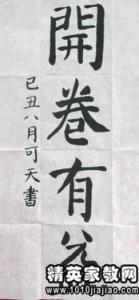 開卷有
己丑八月可天書
精英家教网
www.1010jiajiao.com